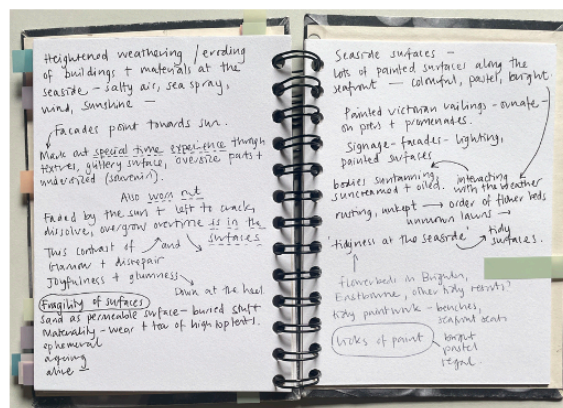 Heightened weathering / eroding
of buildings + materials at the
seaside – salty air, sea spray,
wind, sunshine –
Facades point towards sun.
Mark out special time experience through
fixtures, glittery surface, oversize parts +
undersized (souvenir).
Also worn out
Faded by the sun + left to crack,
dissolve, overgrow overtime is in the
surfaces
This contrast of and
Glamour + disrepair
Joyfulness + glumness
Down at the heel
Fragility of surfaces
Sand as permeable surface – buried stuff
Materiality – wear + tear of high top tents.
ephemeral
ageing
alive
Seaside surfaces –
lots of painted surfaces along the
seafront – colourful, pastel, bright.
Painted Victorian railings – ornate –
on piers + promenades.
Signage – facades – lighting,
painted surfaces
bodies suntanning, interacting
suncreamed + oiled. with the weather
rusting, unkept → order of flower beds
mown lawns →
'tidiness at the seaside' tidy
surfaces.
flowerbeds in Brighton,
Eastbourne, other tidy resorts?
tidy paintwork – benches,
seafront seats
licks of paint bright
pastel
regal